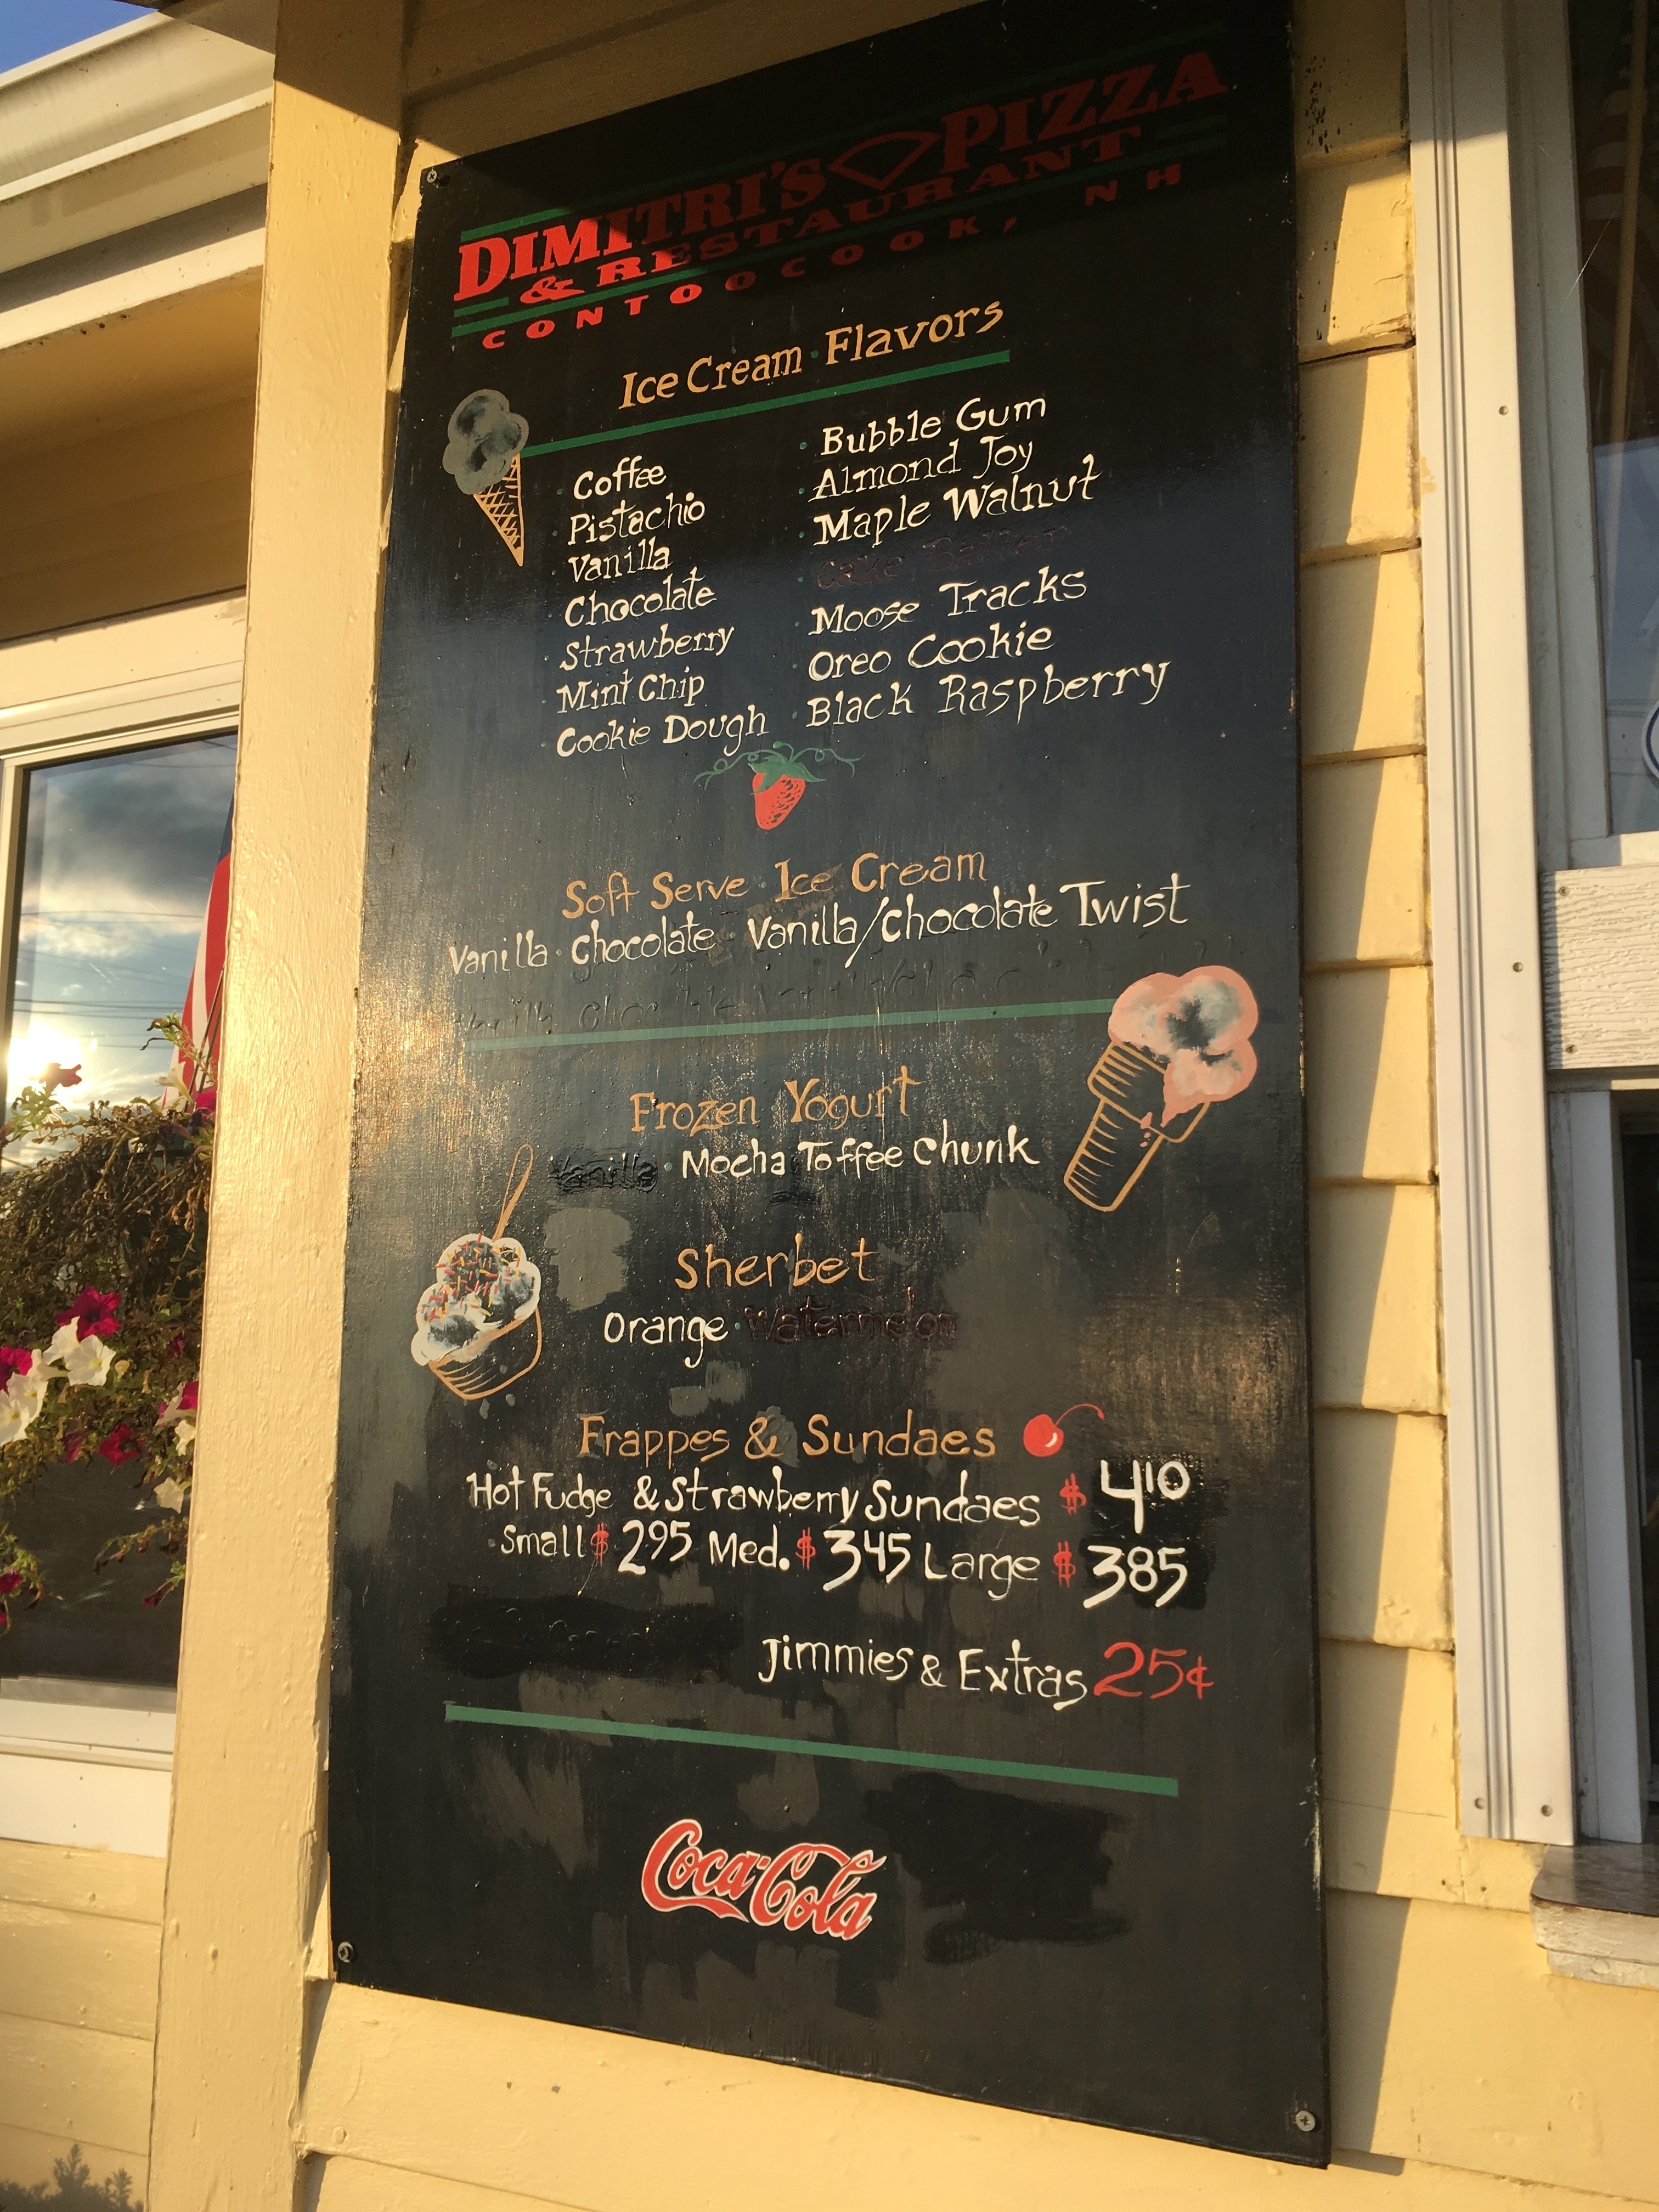 DIMITRI'S PIZZA
& RESTAURANT
CONTOOCOOK, NH
Ice Cream Flavors
· Coffee
· Pistachio
· Vanilla
· Chocolate
· Strawberry
· Mint Chip
· Cookie Dough
· Bubble Gum
· Almond Joy
· Maple Walnut
· Cake Batter
· Moose Tracks
· Oreo Cookie
· Black Raspberry
Soft Serve Ice Cream
Vanilla · Chocolate · Vanilla/Chocolate Twist
Frozen Yogurt
Vanilla · Mocha Toffee Chunk
Sherbet
Orange · Watermelon
Frappes & Sundaes
Hot Fudge & Strawberry Sundaes $410
Small $295 Med. $345 Large $385
Jimmies & Extras 25¢
Coca-Cola